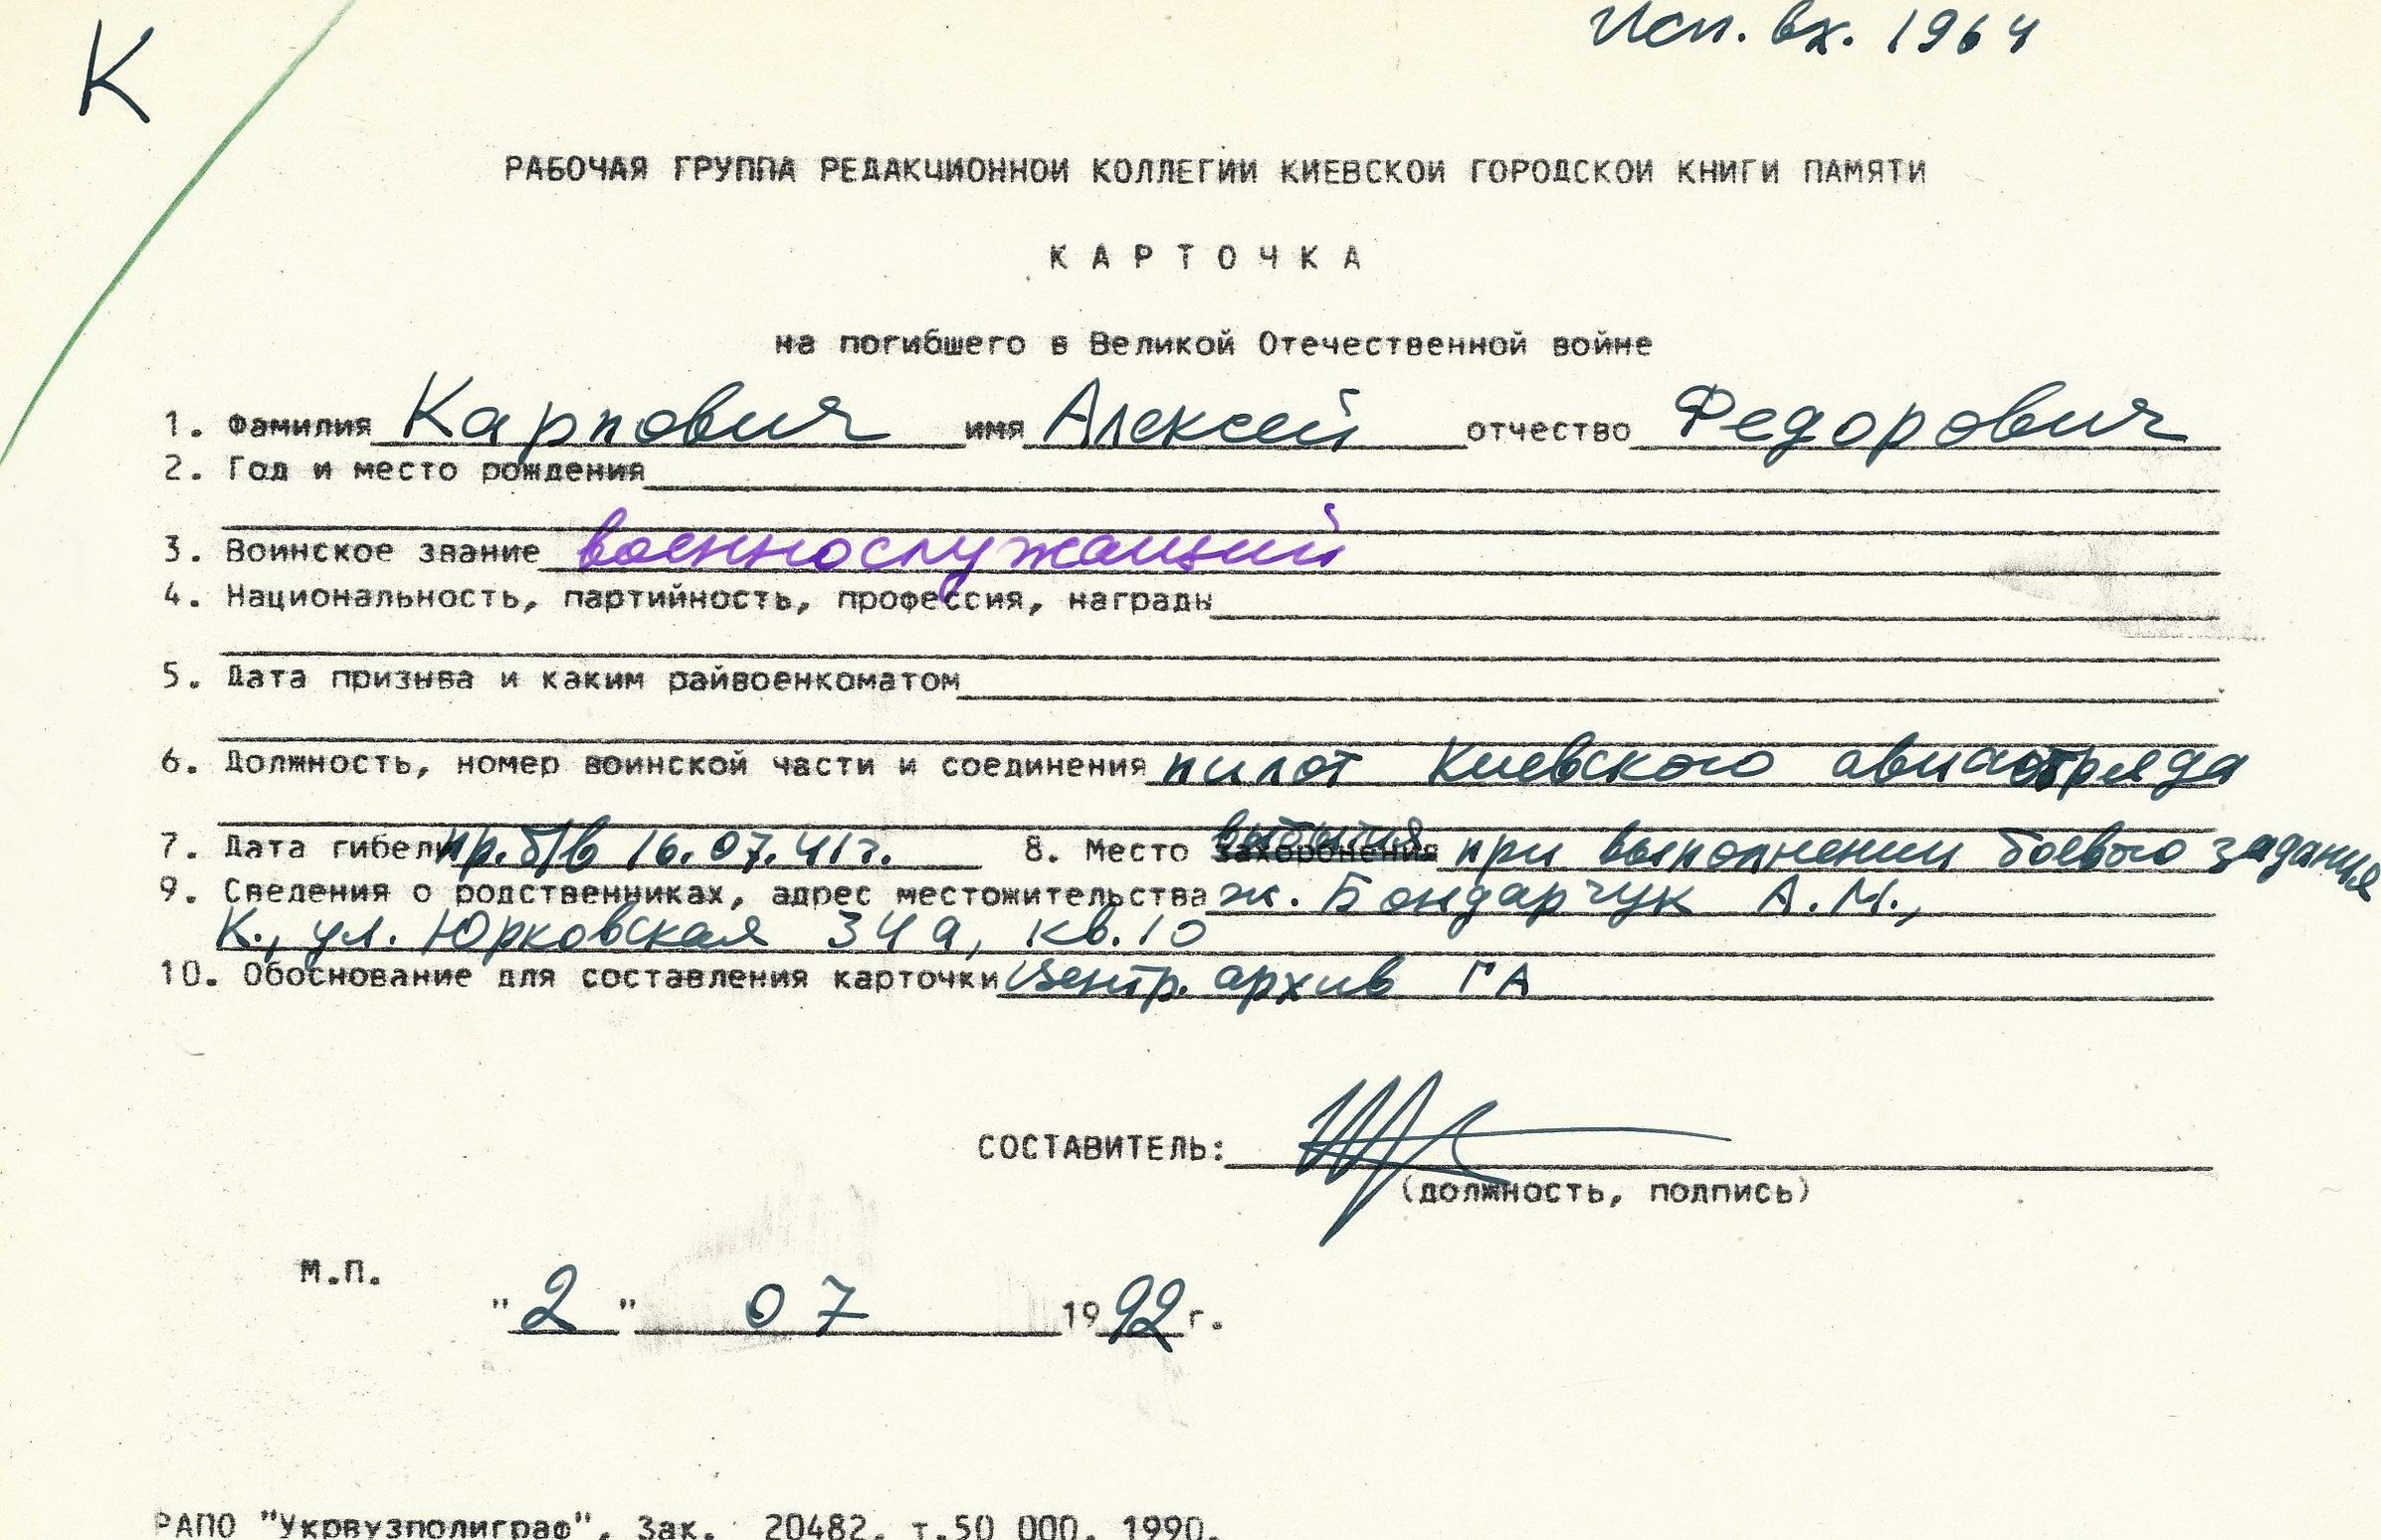 К
Исп. вх. 1964
РАБОЧАЯ ГРУППА РЕДАКЦИОННОЙ КОЛЛЕГИИ КИЕВСКОЙ ГОРОДСКОЙ КНИГИ ПАМЯТИ
К А Р Т О Ч К А
на погибшего в Великой Отечественной войне
1. Фамилия Карпович имя Алексей отчество Федорович
2. Год и место рождения
3. Воинское звание военнослужащий
4. Национальность, партийность, профессия, награды
5. Дата призыва и каким райвоенкоматом
6. Должность, номер воинской части и соединения пилот Киевского авиаотряда
7. Дата гибели пр.б/в 16.07.41г. 8. Место выбытия захоронения при выполнении боевого задания
9. Сведения о родственниках, адрес местожительства ж. Бондарчук А.М.,
К., ул. Юрковская 34а, кв.10
10. Обоснование для составления карточки Центр. архив ГА
СОСТАВИТЕЛЬ:
(должность, подпись)
М.П.
"2" 07 1992г.
РАПО "Укрвузполиграф". Зак. 20482. т.50 000. 1990.